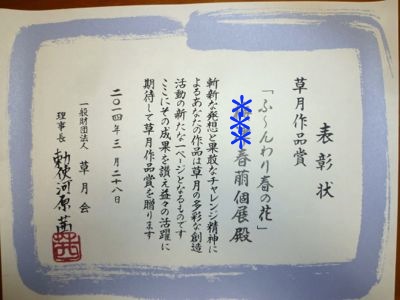 表彰状
草月作品賞
「ふ〜んわり春の花」
春萠個展殿
斬新な発想と果敢なチャレンジ精神に
よるあなたの作品は草月の多彩な創造
活動の新たな一ページとなるものです
ここにその成果を讃え益々の活躍に
期待して草月作品賞を贈ります
二〇一四年三月二十八日
一般財団法人 草月会
理事長 勅使河原 茜